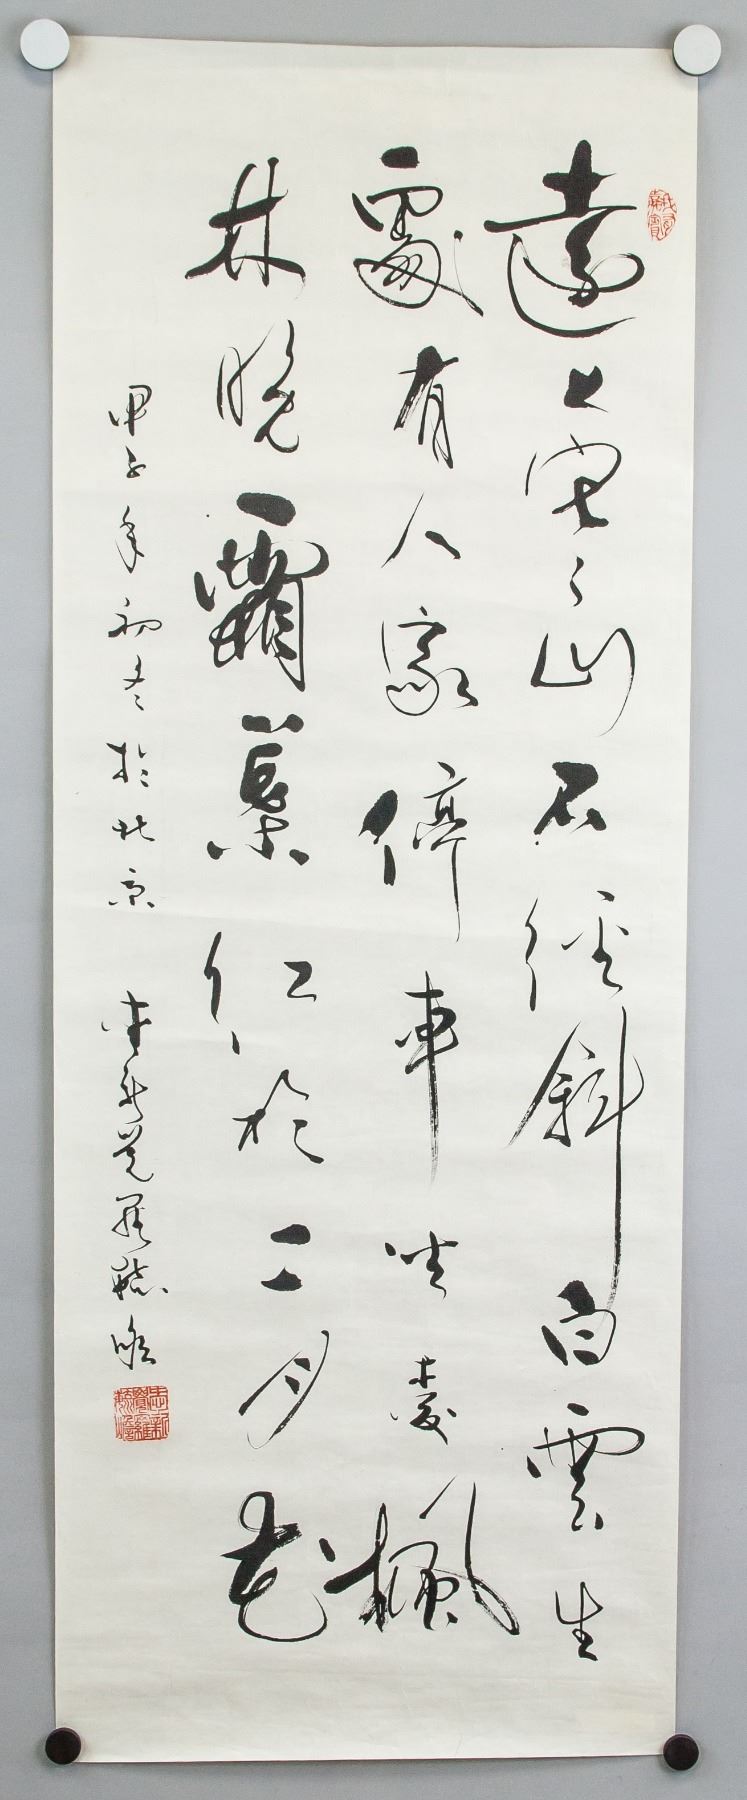 遠上寒山石徑斜白雲生
處有人家停車坐愛楓
林晚霜葉紅於二月花
甲子年初冬於北京 愛新覺羅毓